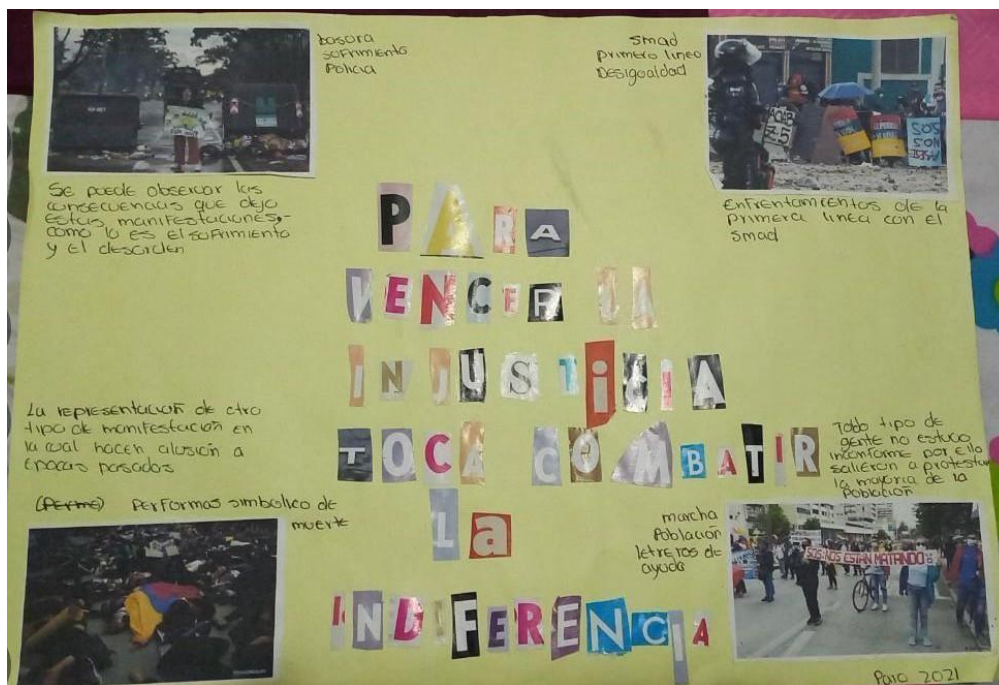 basora
sofrimiento
Policia
Se puede observar las
consecuencias que dejo
estas manifestaciones,-
como lo es el sufrimiento
y el desorden
smad
primero linea
Desigualdad
ACAB
SOS
NOS
enfrentamientos de la
primera linea con el
smad
PARA
VENCER LA
INJUSTICIA
TOCA COMBATIR
La
INDIFERENCIA
La representación de otro
tipo de manifestación en
la cual hacen alusión a
epocas pasados
(Perfme) Performas simbolico de
muerte
Todo tipo de
gente no estuvo
inconforme por ello
salieron a protestar
la mayoria de la
Población
marcha
Población
letreros de
ayuda
SOS: NOS ESTAN MATANDO
Paro 2021